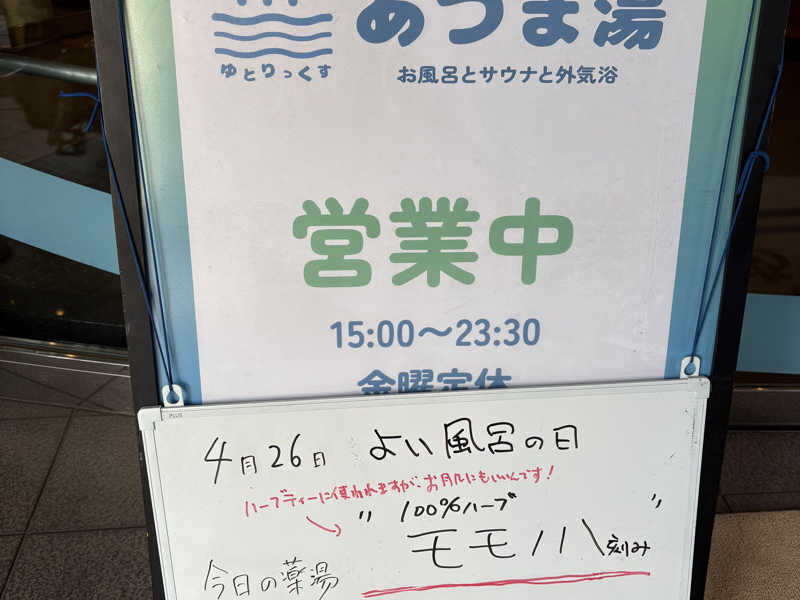 あづま湯
ゆとりっくす
お風呂とサウナと外気浴
営業中
15:00～23:30
金曜定休
PLUS
4月26日 よい風呂の日
ハーブティーに使われますが、お肌にもいいんです!
"100%ハーブ"
モモノハ刻み
今日の薬湯